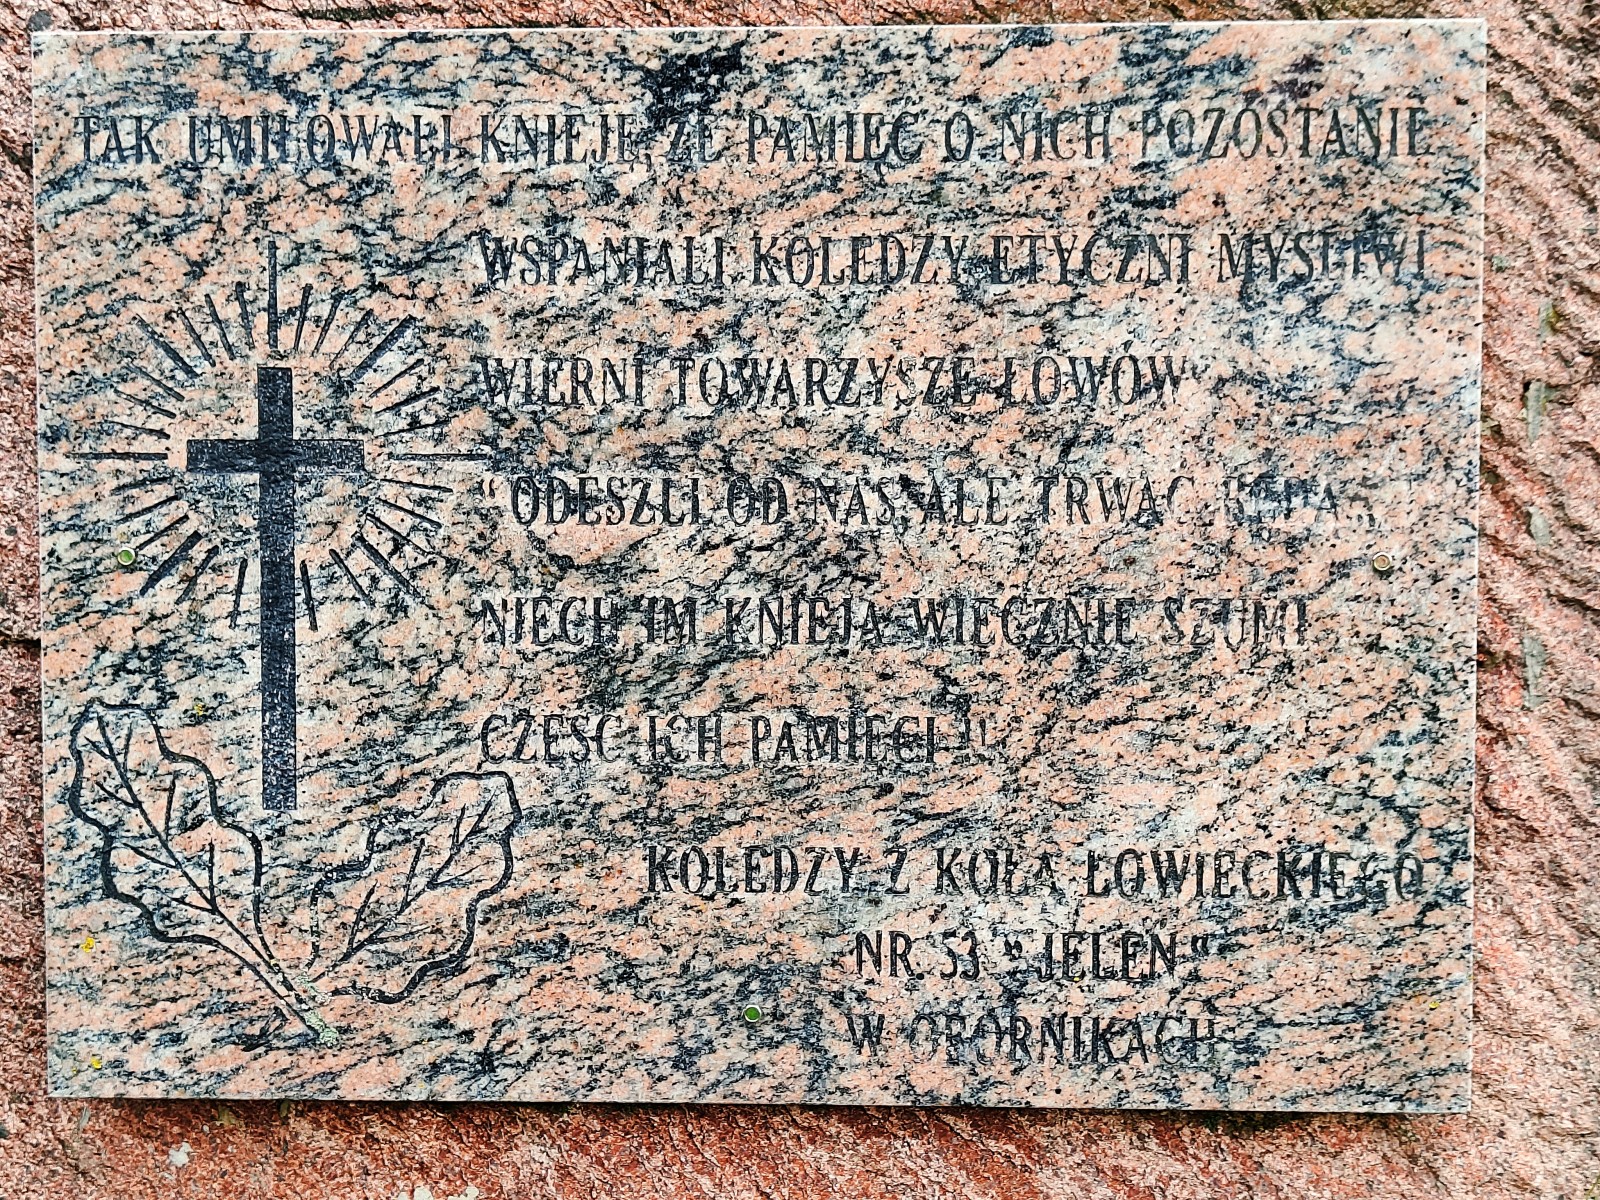 TAK UMIŁOWALI KNIEJE, ŻE PAMIĘĆ O NICH POZOSTANIE
WSPANIALI KOLEDZY ETYCZNI MYŚLIWI
WIERNI TOWARZYSZE ŁOWÓW
“ODESZLI OD NAS, ALE TRWAĆ BĘDĄ
NIECH IM KNIEJA WIECZNIE SZUMI
CZEŚĆ ICH PAMIĘCI !!
KOLEDZY Z KOŁA ŁOWIECKIEGO
NR. 53 "JELEŃ"
W OBORNIKACH